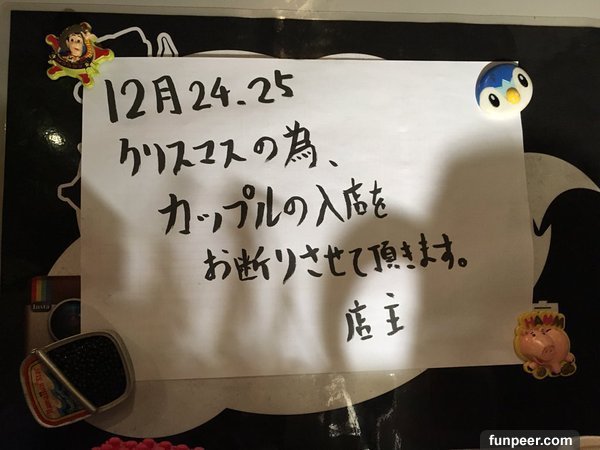 12月24.25
クリスマスの為、
カップルの入店を
お断りさせて頂きます。
店主
Insta
funpeer.com